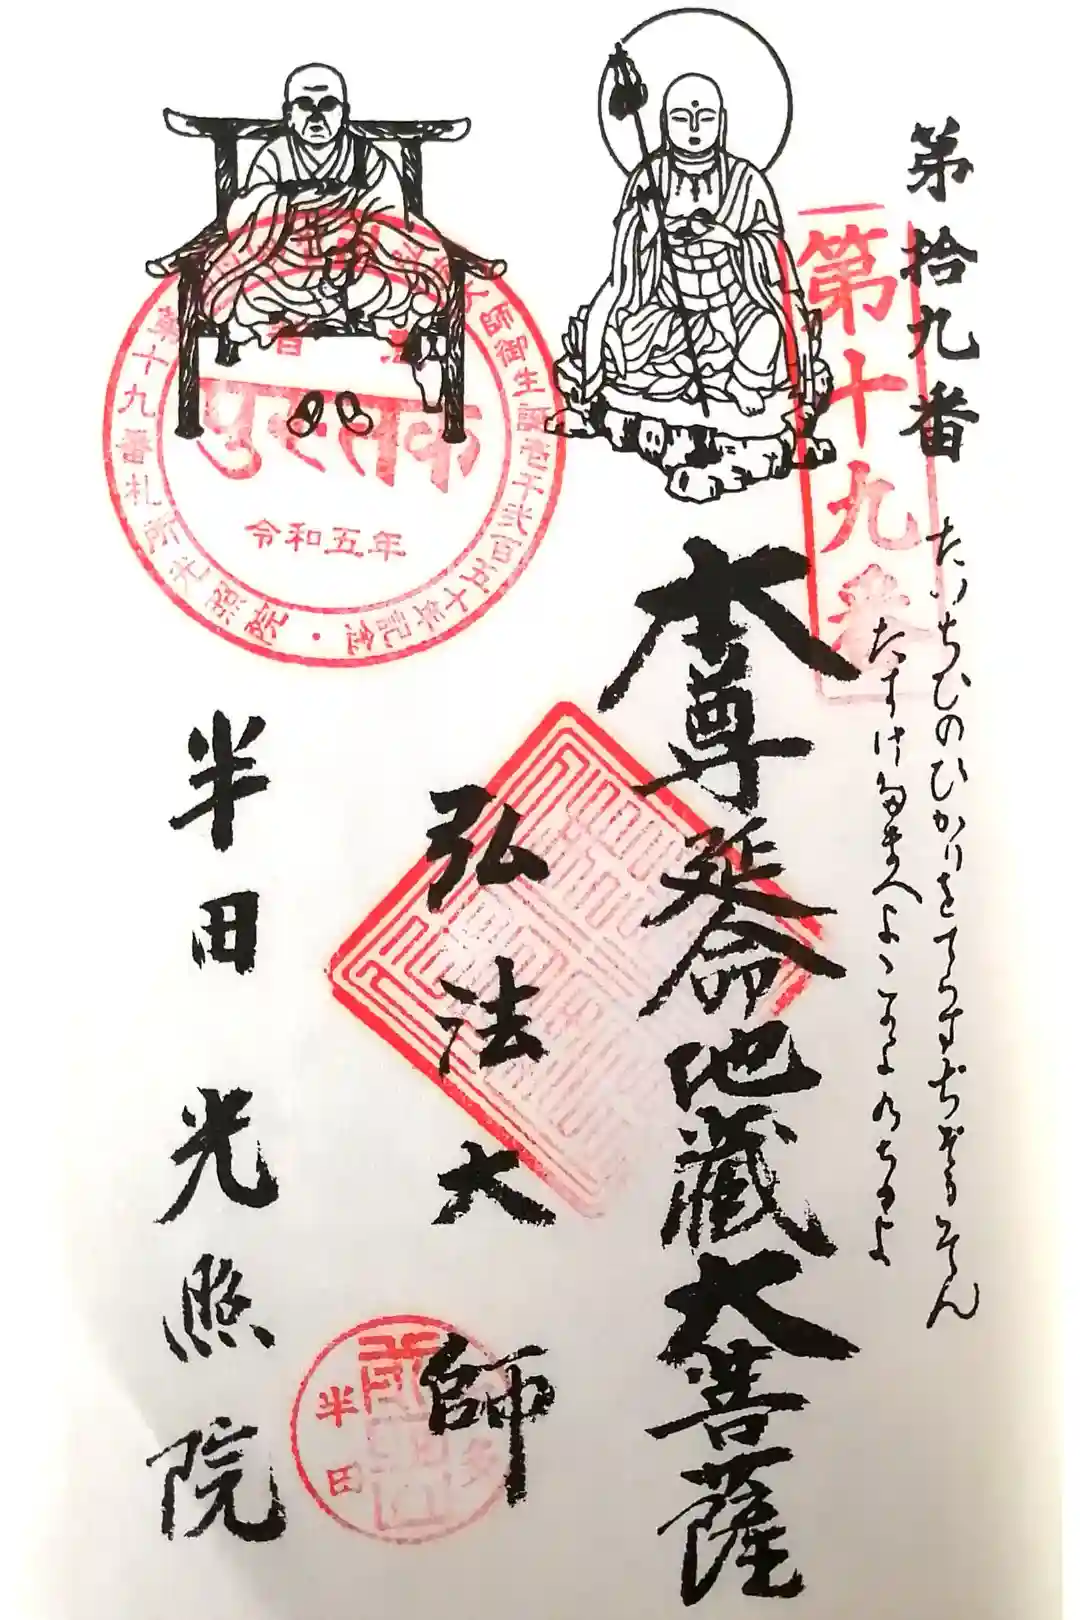 第拾九番
たいちひのひかりをてらすぢぞうそん
たすけたまへよこのよのちのよ
第十九番
本尊延命地蔵大菩薩
弘法大師
半田光照院
大師御生誕壱千弐百五十年記念・
第十九番札所光照院
पुस्तक
令和五年
半田